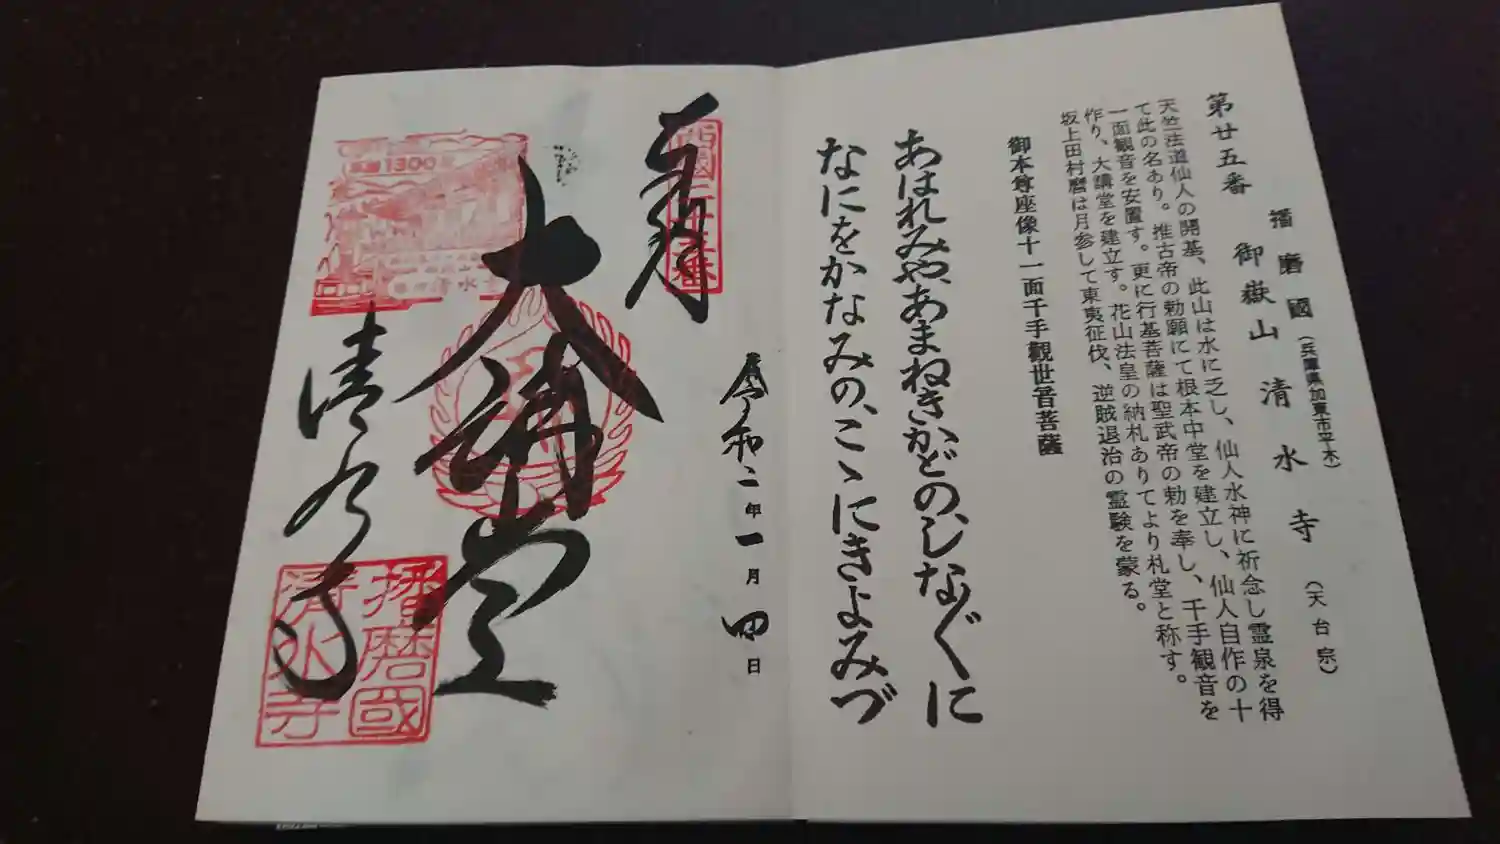 第廿五番
播磨國(兵庫県加東市平木)
御嶽山 清水寺(天台宗)
天竺法道仙人の開基、此山は水に乏し、仙人水神に祈念し霊泉を得
て此の名あり。推古帝の勅願にて根本中堂を建立し、仙人自作の十
一面観音を安置す。更に行基菩薩は聖武帝の勅を奉し、千手観音を
作り、大講堂を建立す。花山法皇の納札ありてより札堂と称す。
坂上田村麿は月参して東夷征伐、逆賊退治の霊験を蒙る。
御本尊座像十一面千手觀世音菩薩
あはれみや、あまねきかどの、しなぐに
なにをかなみの、こゝにきよみづ
奉拝
西國二十五番
令和二年一月四日
大講堂
1300年
清水寺
清水寺
播磨國
清水寺